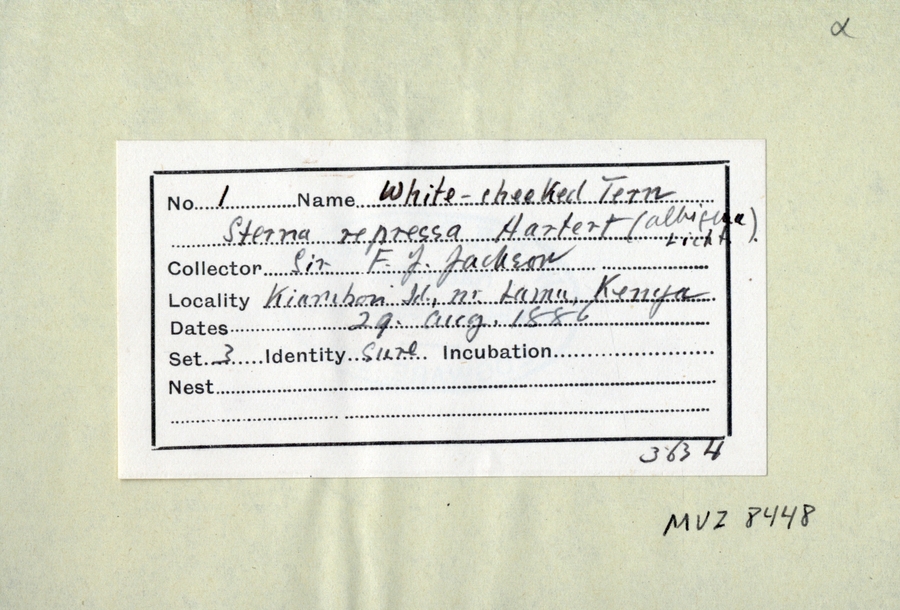 α
No. 1 Name White-cheeked Tern
Sterna repressa Hartert (albigena
Licht.).
Collector Sir F. J. Jackson
Locality Id., nr Lamu, Kenya
Dates 29. Aug. 1886
Set 3 Identity sure. Incubation
Nest
3634
MVZ 8448